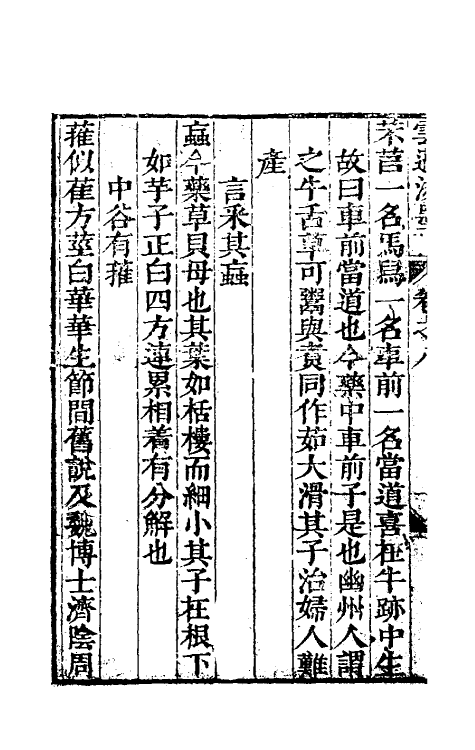 芣苢一名馬舄一名車前一名當道喜在牛跡中生
故曰車前當道也今藥中車前子是也幽州人謂
之牛舌草可鬻與煑同作茹大滑其子治婦人難
產
言采其蝱
蝱今藥草貝母也其葉如栝樓而細小其子在根下
如芋子正白四方連累相着有分解也
中谷有蓷
蓷似萑方莖白華華生節間舊說及魏博士濟陰周